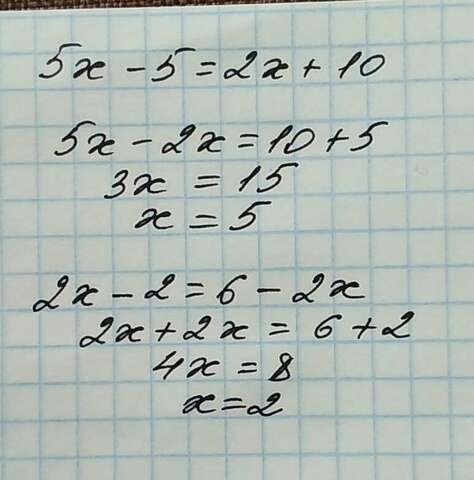 5x - 5 = 2x + 10
5x - 2x = 10 + 5
3x = 15
x = 5
2x - 2 = 6 - 2x
2x + 2x = 6 + 2
4x = 8
x = 2